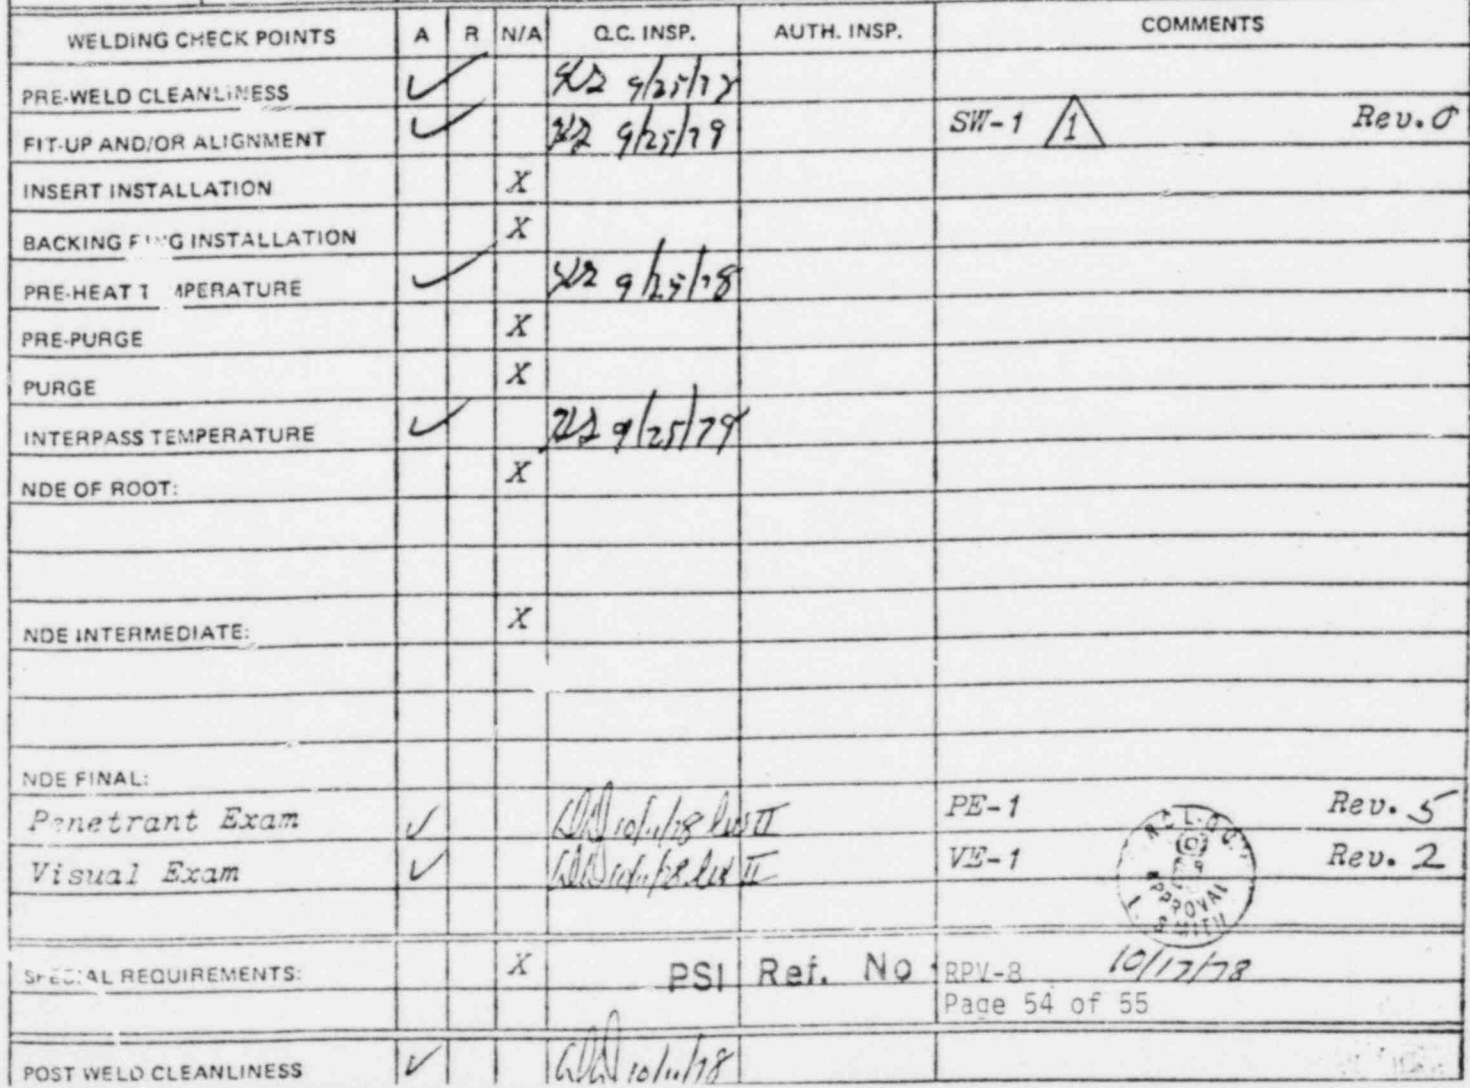 WELDING CHECK POINTS A R N/A Q.C. INSP. AUTH. INSP. COMMENTS
PRE-WELD CLEANLINESS ✓
FIT-UP AND/OR ALIGNMENT ✓ 9/25/79 SW-1 1 Rev. 0
INSERT INSTALLATION X
BACKING INSTALLATION X
PRE-HEAT ✓ 9/25/78
PRE-PURGE X
PURGE X
INTERPASS TEMPERATURE ✓ 9/25/79
NDE OF ROOT: X
NDE INTERMEDIATE: X
NDE FINAL:
Penetrant Exam ✓ 10/11/78 II PE-1 Rev. 5
Visual Exam ✓ 10/11/78 II VE-1 Rev. 2
APPROVAL
SMITH
SPECIAL REQUIREMENTS: X PSI Ref. No RPV-8 10/17/78
Page 54 of 55
POST WELD CLEANLINESS ✓ 10/11/78